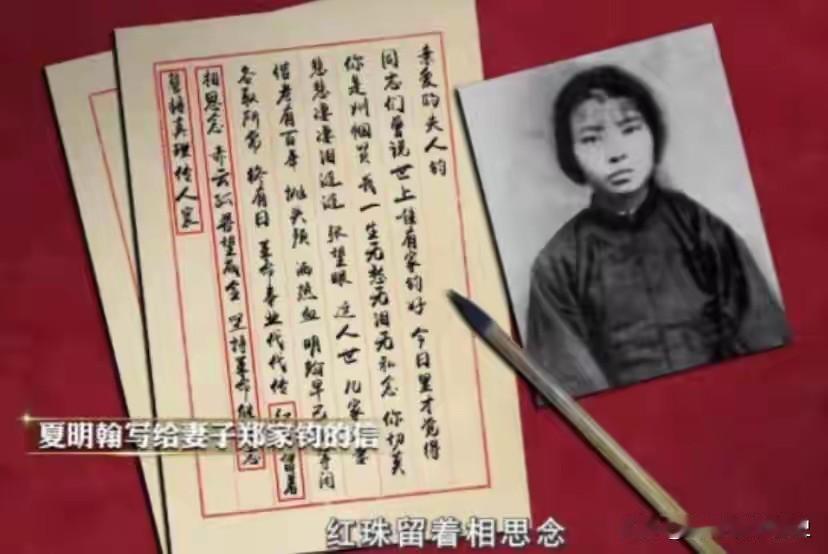 亲爱的夫人钧
同志们曾说世上唯有家钧好 今日里才觉得
你是巾帼贤 我一生无愁无泪无私念 你切莫
悲悲凄凄泪涟涟 张望眼 这人世 几家妻
偕老有百年 抛头颅 洒热血 明翰早已等闲
各取所需终有日 革命事业代代传 红留着
相思念 赤云孤苦望成全 坚持革命继志
誓将真理传人寰
夏明翰写给妻子郑家钧的信
红珠留着相思念